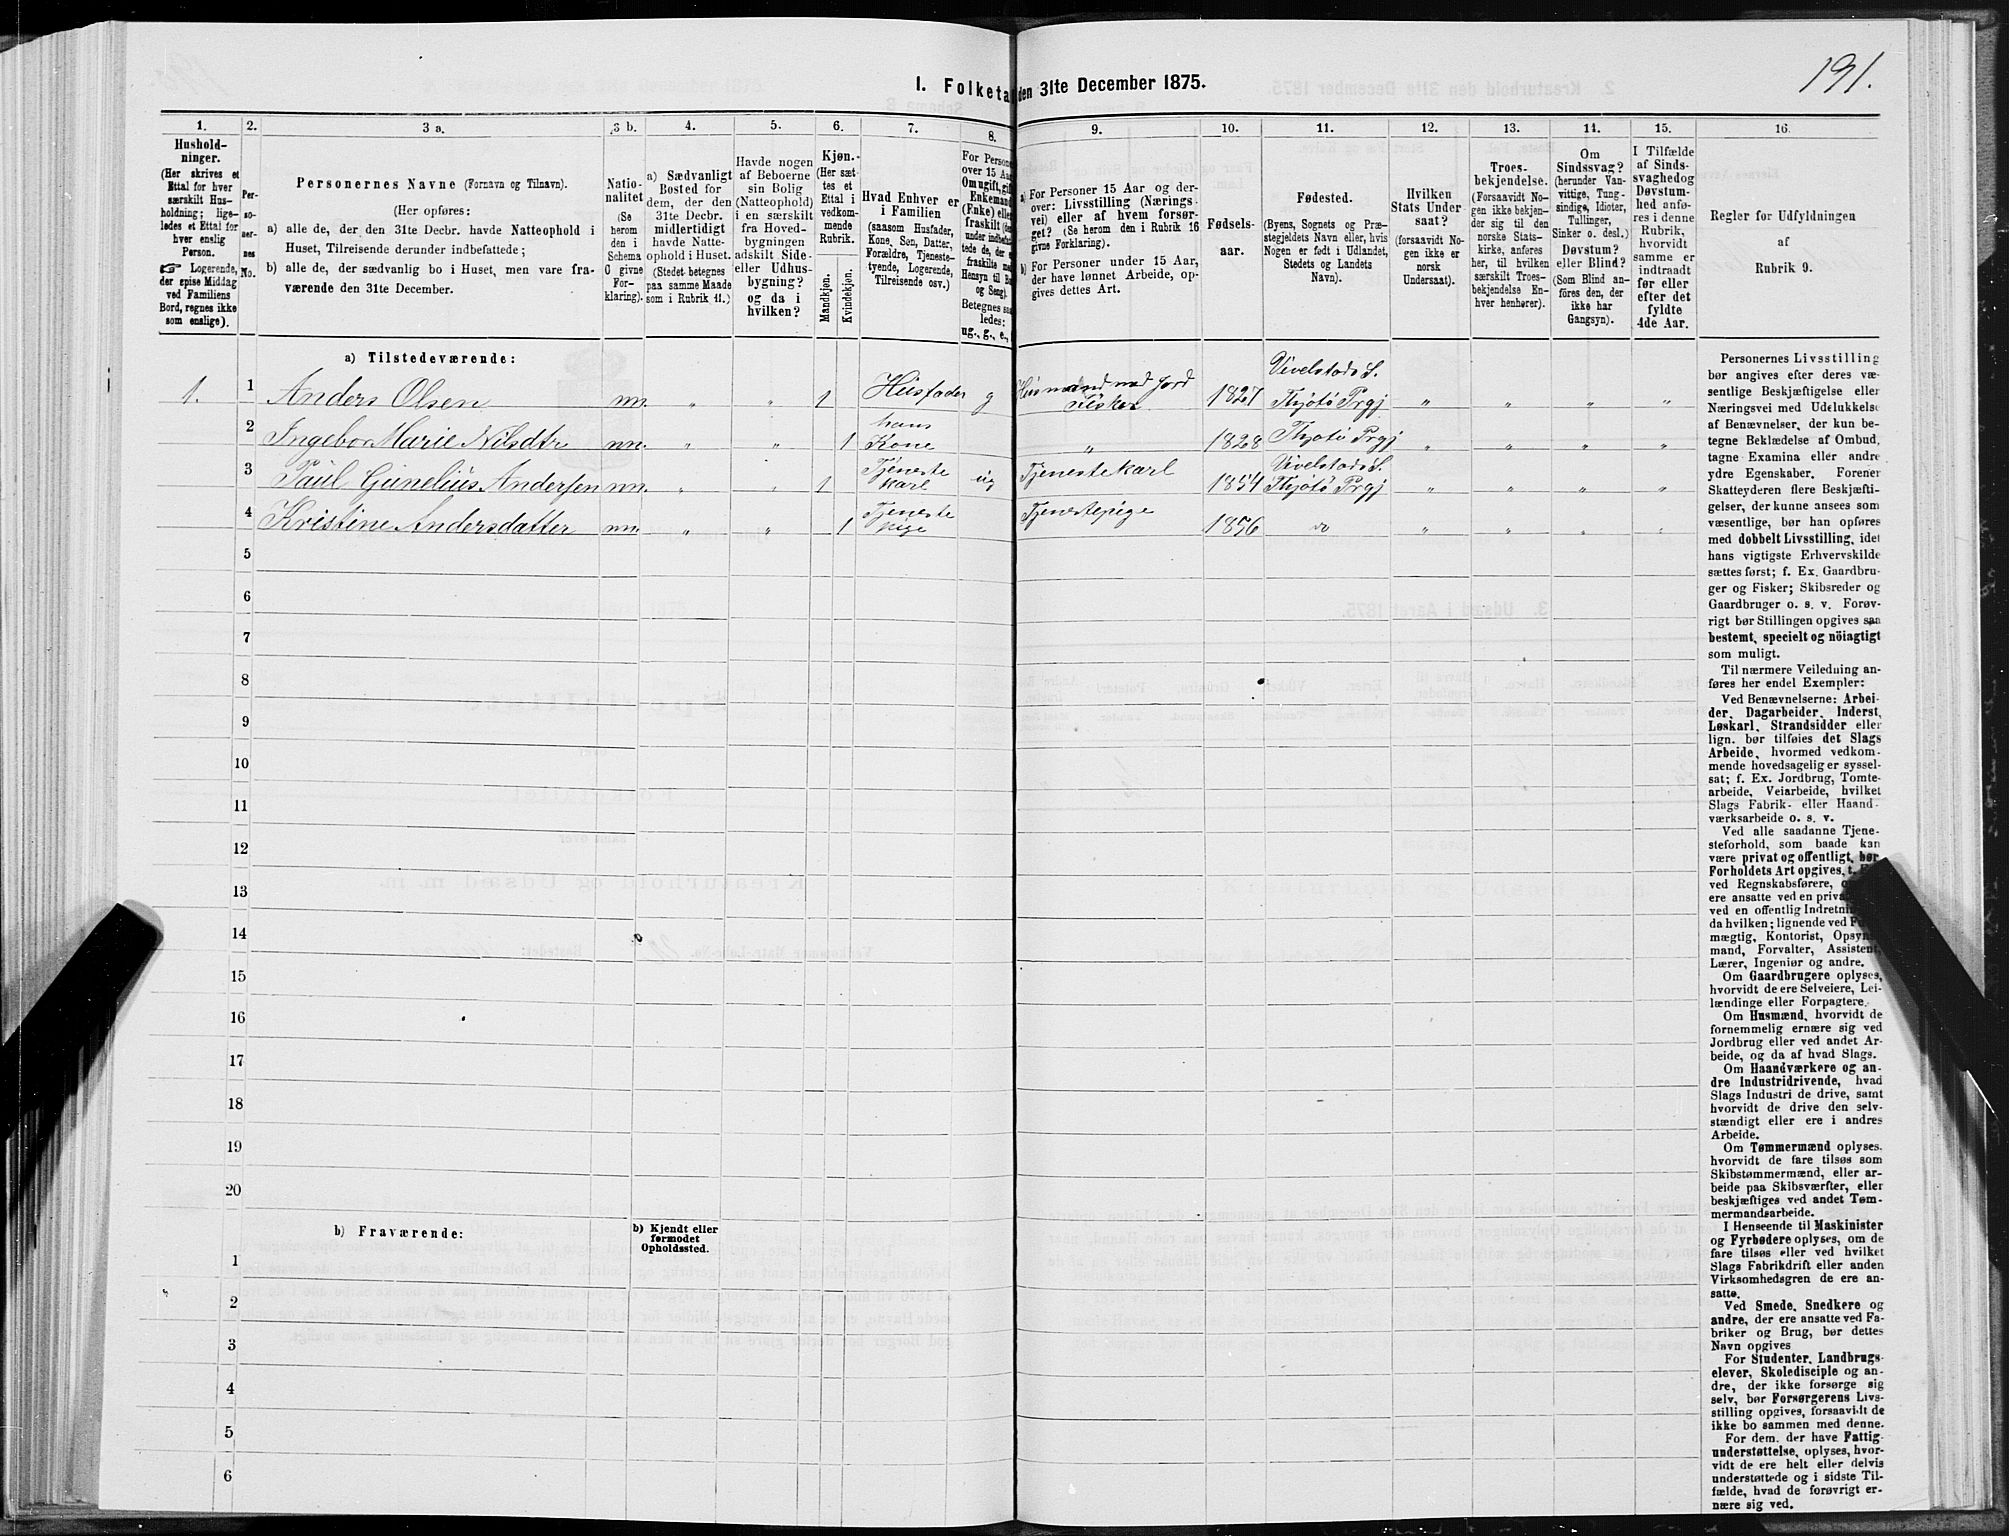 191.
I. Folketæ den 31te December 1875.
1. 2. 3 a. 3 b. 4. 5. 6. 7. 8. 9. 10. 11. 12. 13. 14. 15. 16.
Hushold-
ninger.
(Her skrives et
Ettal for hver
særskilt Hus-
holdning; lige-
ledes et Ettal for
hver enslig
Person.
☞ Logerende,
der spise Middag
ved Familiens
Bord, regnes ikke
som enslige).
Per-
so-
ner-
nes
No.
Personernes Navne (Fornavn og Tilnavn).
(Her opføres:
a) alle de, der den 31te Decbr. havde Natteophold i
Huset, Tilreisende derunder indbefattede;
b) alle de, der sædvanlig bo i Huset, men vare fra-
værende den 31te December.
Natio-
nalitet
(Se
herom
den i
Schema
C givne
For-
klaring).
a) Sædvanligt
Bosted for
dem, der den
31te Decbr.
midlertidigt
havde Natte-
ophold i Huset.
(Stedet betegnes
paa samme Maade
som i Rubrik 11.)
Havde nogen
af Beboerne
sin Bolig
(Natteophold)
i en særskilt
fra Hoved-
bygningen
adskilt Side-
eller Udhus-
bygning?
og da i
hvilken?
Kjøn.
(Her sæt-
tes et
Ettal i
vedkom-
mende
Rubrik.
Mandkjøn.
Kvindekjøn.
Hvad Enhver er
i Familien
(saasom Husfader,
Kone, Søn, Datter,
Forældre, Tjeneste-
tyende, Logerende,
Tilreisende osv.)
For Persone
over 15 Aar
Om ugift, gift
Enkemand
(Enke) eller
fraskilt
under indbefat-
tede de, der
fraskilte med
Hensyn til Bo
og Seng).
Betegnes saa
ledes:
ug., g., e.,
a) For Personer 15 Aar og der-
over: Livsstilling (Nærings-
vei) eller af hvem forsør-
get? (Se herom den i Rubrik 16
givne Forklaring).
b) For Personer under 15 Aar,
der have lønnet Arbeide, op-
gives dettes Art.
Fødsels-
aar.
Fødested.
(Byens, Sognets og Præ-
stegjeldets Navn eller, hvis
Nogen er født i Udlandet,
Stedets og Landets
Navn).
Hvilken
Stats Under
saat?
(forsaavidt No-
gen ikke er
norsk
Undersaat).
Troes-
bekjendelse.
(Forsaavidt No-
gen ikke bekjen-
der sig til den
norske Stats-
kirke, anføres
her, til hvilken
særskilt Troes-
bekjendelse En-
hver henhører).
Om
Sindssvag?
(herunder Van-
vittige, Tung-
sindige, Idioter,
Tullinger,
Sinker o. desl.)
Døvstum?
eller Blind?
(Som Blind an-
føres den, der
ikke har
Gangsyn).
I Tilfælde
af Sinds-
svaghed og
Døvstum-
hed anfø-
res i denne
Rubrik,
hvorvidt
samme er
indtraadt
før eller
efter det
fyldte
4de Aar.
Regler for Udfyldningen
af
Rubrik 9.
a) Tilstedeværende:
1. 1 Anders Olsen nn. " " 1 Husfader g Husmand med Jord Fisker 1827 Vivelstads S. Thjøtø Prgj " " " "
2 Ingebor Marie Nilsdtr nn. " " 1 hans Kone " 1828 Thjøtø Prgj " " " "
3 Paul Gunelius Andersen nn. " " 1 Tjeneste karl ug Tjenestekarl 1854 Vivelstads S. Thjøtø Prgj " " " "
4 Kristine Andersdatter nn " " 1 Tjeneste pige Tjenestepige 1856 do " " " "
5
6
7
8
9
10
11
12
13
14
15
16
17
18
19
20
b) Fraværende:
b) Kjendt eller
formodet
Opholdssted.
1
2
3
4
5
6
Personernes Livsstilling
bør angives efter deres væ-
sentlige Beskjæftigelse eller
Næringsvei med Udelukkelse
af Benævnelser, der kun be-
tegne Beklædelse af Ombud,
tagne Examina eller andre
ydre Egenskaber. Forener
Skatteyderen flere Beskjæfti-
gelser, der kunne ansees som
væsentlige, bør han opføres
med dobbelt Livsstilling, idet
hans vigtigste Erhvervskilde
sættes først; f. Ex. Gaardbru-
ger og Fisker; Skibsreder og
Gaardbruger o. s. v. Forøv-
rigt bør Stillingen opgives saa
bestemt, specielt og nöiagtigt
som muligt.
Til nærmere Veiledning an-
føres her endel Exempler:
Ved Benævnelserne: Arbei-
der, Dagarbeider, Inderst,
Løskarl, Strandsidder eller
lign. bør tilføies det Slags
Arbeide, hvormed vedkom-
mende hovedsagelig er syssel-
sat; f. Ex. Jordbrug, Tomte-
arbeide, Veiarbeide, hvilket
Slags Fabrik- eller Haand-
værksarbeide o. s. v.
Ved alle saadanne Tjene-
steforhold, som baade kan
være privat og offentligt, bør
Forholdets Art opgives, t.
ved Regnskabsførere,
ere ansatte ved en priva
ved en offentlig Indretni
da hvilken; lignende ved F
mægtig, Kontorist, Opsyns
mand, Forvalter, Assistent,
Lærer, Ingeniør og andre.
Om Gaardbrugere oplyses,
hvorvidt de ere Selveiere, Lei-
lændinge eller Forpagtere.
Om Husmænd, hvorvidt de
fornemmelig ernære sig ved
Jordbrug eller ved andet Ar-
beide, og da af hvad Slags.
Om Haandværkere og an-
dre Industridrivende, hvad
Slags Industri de drive, samt
hvorvidt de drive den selv-
stændigt eller ere i andres
Arbeide.
Om Tømmermænd oplyses.
hvorvidt de fare tilsøs som
Skibstømmermænd, eller ar-
beide paa Skibsværfter, eller
beskjæftiges ved andet Tøm-
mermandsarbeide.
I Henseende til Maskinister
og Fyrbødere oplyses, om de
fare tilsøs eller ved hvilket
Slags Fabrikdrift eller anden
Virksomhedsgren de ere an-
satte.
Ved Smede, Snedkere og
andre, der ere ansatte ved Fa-
briker og Brug, bør dettes
Navn opgives
For Studenter, Landbrugs-
elever, Skoledisciple og an-
dre, der ikke forsørge sig
selv, bør Forsørgerens Livs-
stilling opgives, forsaavidt de
ikke bo sammen med denne.
For dem, der have Fattig-
understøttelse, oplyses, hvor-
vidt de ere helt eller delvis
understøttede og i sidste Til-
fælde, hvad de forøvrigt er-
nære sig ved.